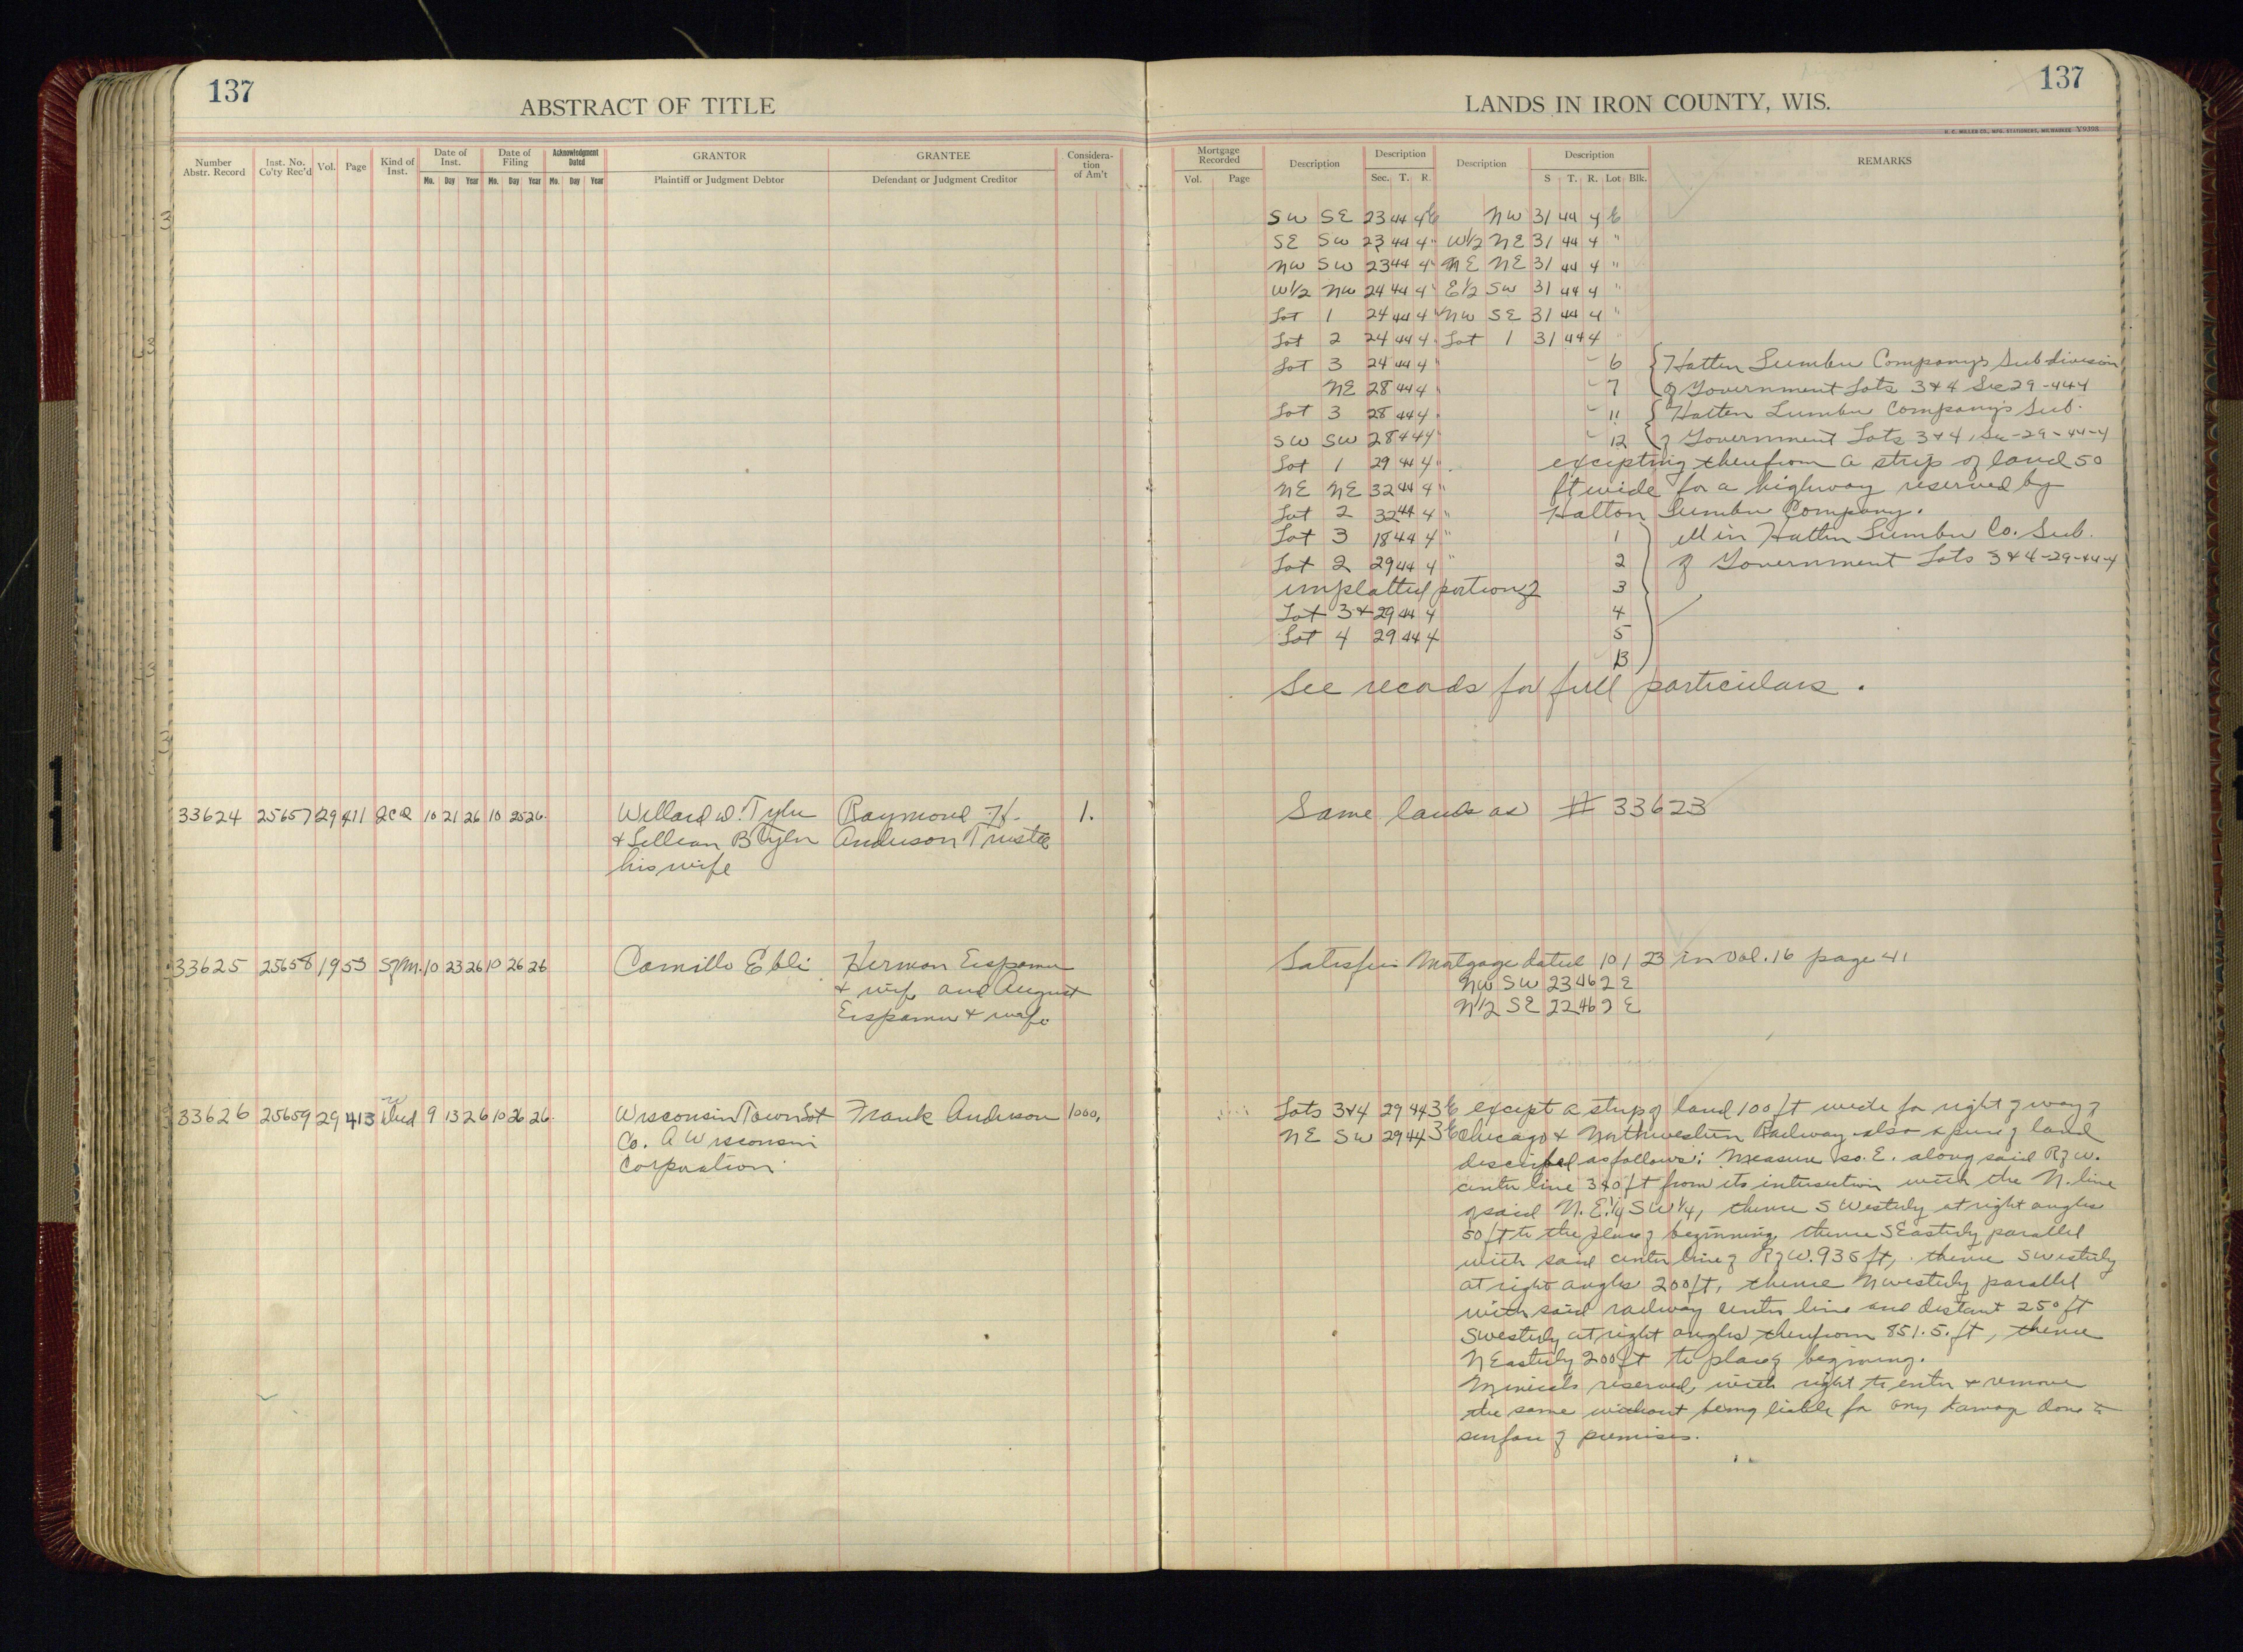 137
ABSTRACT OF TITLE
Number Abstr. Record
Inst. No. Co'ty Rec'd
Vol.
Page
Kind of Inst.
Date of Inst.
Mo. Day Year
Date of Filing
Mo. Day Year
Acknowledgment Dated
Mo. Day Year
GRANTOR
Plaintiff or Judgment Debtor
GRANTEE
Defendant or Judgment Creditor
Consideration of Am't
33624 25657 29 411 QCD 10 21 26 10 25 26 Willard D. Tyler Raymond H. 1.
& Lillian B Tyler Anderson Trustee
his wife
33625 25658 19 53 S of M. 10 23 26 10 26 26 Camillo Ebli Herman
& wife and August
& wife
33626 25659 29 413 W Deed 9 13 26 10 26 26 Wisconsin Town Lot Frank Anderson 1000.
Co. A Wisconsin
Corporation
137
LANDS IN IRON COUNTY, WIS.
H. C. MILLER CO., MFG. STATIONERS, MILWAUKEE Y9398
Mortgage Recorded
Vol. Page
Description
Description
Sec. T. R.
Description
Description
S T. R. Lot Blk.
REMARKS
SW SE 23 44 4 E NW 31 44 4 E
SE SW 23 44 4 " W1/2 NE 31 44 4 "
NW SW 23 44 4 " NE NE 31 44 4 "
W1/2 NW 24 44 4 " E1/2 SW 31 44 4 "
Lot 1 24 44 4 " NW SE 31 44 4 "
Lot 2 24 44 4 " Lot 1 31 44 4
Lot 3 24 44 4 " 6 Hatten Lumber Company's Subdivision
NE 28 44 4 " 7 of Government Lots 3 & 4 Sec 29-44 4
Lot 3 28 44 4 " 11 Hatten Lumber Company's Sub.
SW SW 28 44 4 " 12 of Government Lots 3 & 4, Sec-29-44-4
Lot 1 29 44 4 " excepting therefrom a strip of land 50
NE NE 32 44 4 " ft wide for a highway reserved by
Lot 2 32 44 4 " Hatton Lumber Company.
Lot 3 18 44 4 " 1 all in Hatten Lumber Co. Sub.
Lot 2 29 44 4 " 2 of Government Lots 3 & 4-29-44-4
unplatted portion of 3
Lot 3 & 29 44 4 4
Lot 4 29 44 4 5
13
See records for full particulars.
Same lands as # 33623
Satisfies Mortgage dated 10/1/23 in Vol. 16 page 41
NW SW 23 46 2 E
N1/2 SE 22 46 2 E
Lots 3&4 29 44 3 E except a strip of land 100 ft wide for right of way of
NE SW 29 44 3 E Chicago & Northwestern Railway also a piece of land
described as follows: Measure So. E. along said R of W.
center line 340 ft from its intersection with the N. line
of said N.E.1/4 SW1/4, thence S Westerly at right angles
50 ft to the place of beginning, thence S Easterly parallel
with said center line of R of W. 936 ft, thence SWesterly
at right angles 200 ft, thence NWesterly parallel
with said railway center line and distant 250 ft
SWesterly at right angles therefrom 851.5 ft, thence
N Easterly 200 ft to place of beginning.
Minerals reserved, with right to enter & remove
the same without being liable for any damage done to
surface of premises.